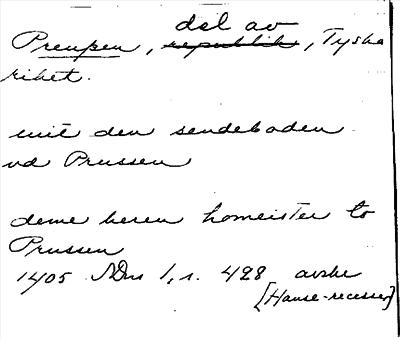 del av
Preuſsen, republik, Tyska
riket.
mit den sendeboden
ud Prussen
deme heren homeister to
Prussen
1405 NDm 1, s. 428 avskr
[Hanse-recesser]